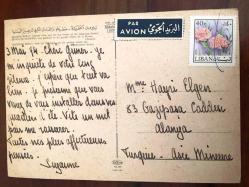 PAR
AVION
البريد الجوي
40 P.
LIBAN
لبنان
3 Mai 74 - Chère Guner - je
m'inquiète de votre long
silence. J'espère que tout va
bien. Je présume que vous
venez de vous installer dans
Vite un mot
pour me rassurer.
Toutes nos plus affectueuses
pensées.
Suzanne
Mme Hayri Elgen
83 Gazipaşa Caddesi
Alanya
Turquie - Asie Mineure